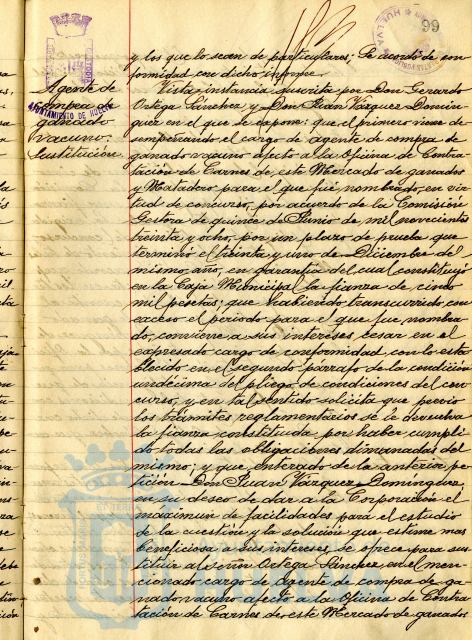 99
HUELVA
CUSTODIA
AYUNTAMIENTO DE HUELVA
Agente de
compra de
ganado
vacuno.
Sustitución.
y los que lo sean de particulares; Se acordó de con
formidad con dicho informe.
Vista instancia suscrita por Don Gerardo
Ortega Sánchez y Don Juan Vázquez Domín
guez en el que se expone: que el primero viene de-
sempeñando el cargo de agente de compra de
ganado vacuno afecto a la Oficina de Contra
tación de Carnes de este Mercado de ganados
y Matadero para el que fué nombrado, en vir
tud de concurso, por acuerdo de la Comisión
Gestora de quince de Junio de mil novecientos
treinta y ocho, por un plazo de prueba que
terminó el treinta y uno de Diciembre del
mismo año, en garantía del cual constituyó
en la Caja Municipal la fianza de cinco
mil pesetas; que habiendo transcurrido con
exceso el período para el que fue nombra
do, conviene a sus intereses cesar en el
expresado cargo de conformidad con lo esta
blecido en el segundo párrafo de la condición
undécima del pliego de condiciones del con
curso, y en tal sentido solicita que previo
los trámites reglamentarios se le devuelva
la fianza constituida por haber cumpli
do todas las obligaciones dimanadas del
mismo; y que enterado de la anterior pe
tición Don Juan Vázquez Domínguez
en su deseo de dar a la Corporación el
maximun de facilidades para el estudio
de la cuestión y la solución que estime mas
beneficiosa a sus intereses se ofrece para sus
tituir al señor Ortega Sánchez en el men
cionado cargo de Agente de compra de ga
nado vacuno afecto a la Oficina de Contra
tación de Carnes de este Mercado de ganados